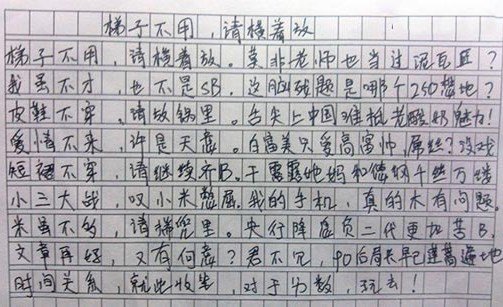 梯子不用，请横着放
梯子不用，请横着放。莫非老师也当过泥瓦匠？
我虽不才，也不是SB，这脑残题是哪个250整地？
皮鞋不穿，请放锅里。舌尖上中国难抵老酸奶魅力！
爱情不来，许是天意。白富美只爱高富帅，屌丝？没戏
短裙不穿，请继续齐B。干露露她妈和你妈千丝万缕
小三大战，叹小米整屏。我的手机，真的木有问题。
米虽不多，请揣兜里。央行降息负二代更加苦B。
文章再好，又有何意？君不见，90后局长早已遍地
时间关系，就此收笔，对于分数，3Q去！